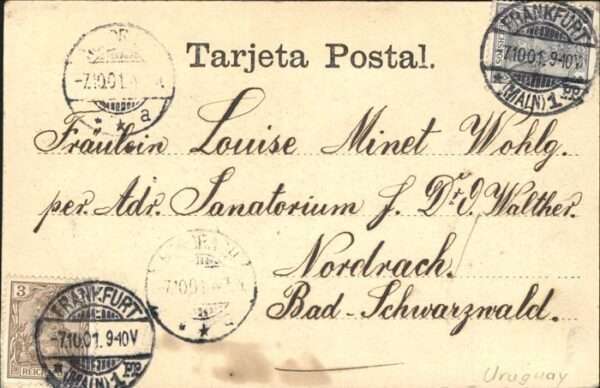 Tarjeta Postal.
FRANKFURT
7.10.01. 9-10V.
(MAIN) 1.
-7.10.01.
a
Fräulein Louise Minet Wohlg.
per. Adr. Sanatorium f. Dr. O. Walther.
Nordrach.
Bad-Schwarzwald.
7.10.01
3
REICH
FRANKFURT
-7.10.01. 9-10V.
(MAIN) 1.
Uruguay